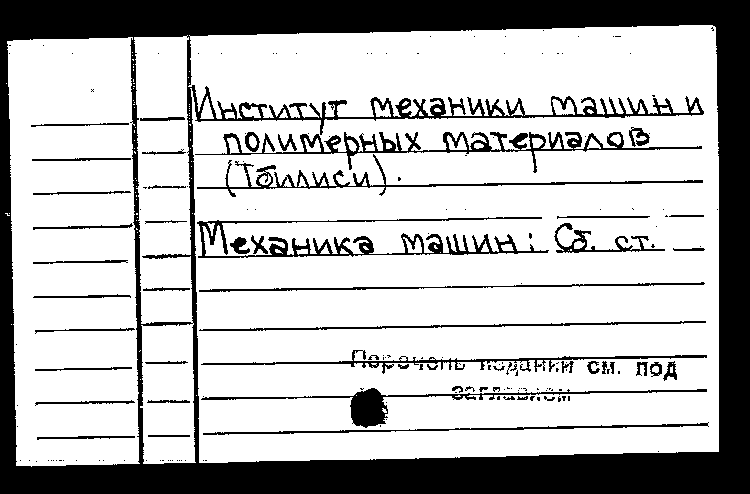 Институт механики машин и
полимерных материалов
(Тбилиси).
Механика машин: Сб. ст.
Перечень изданий см. под
заглавием